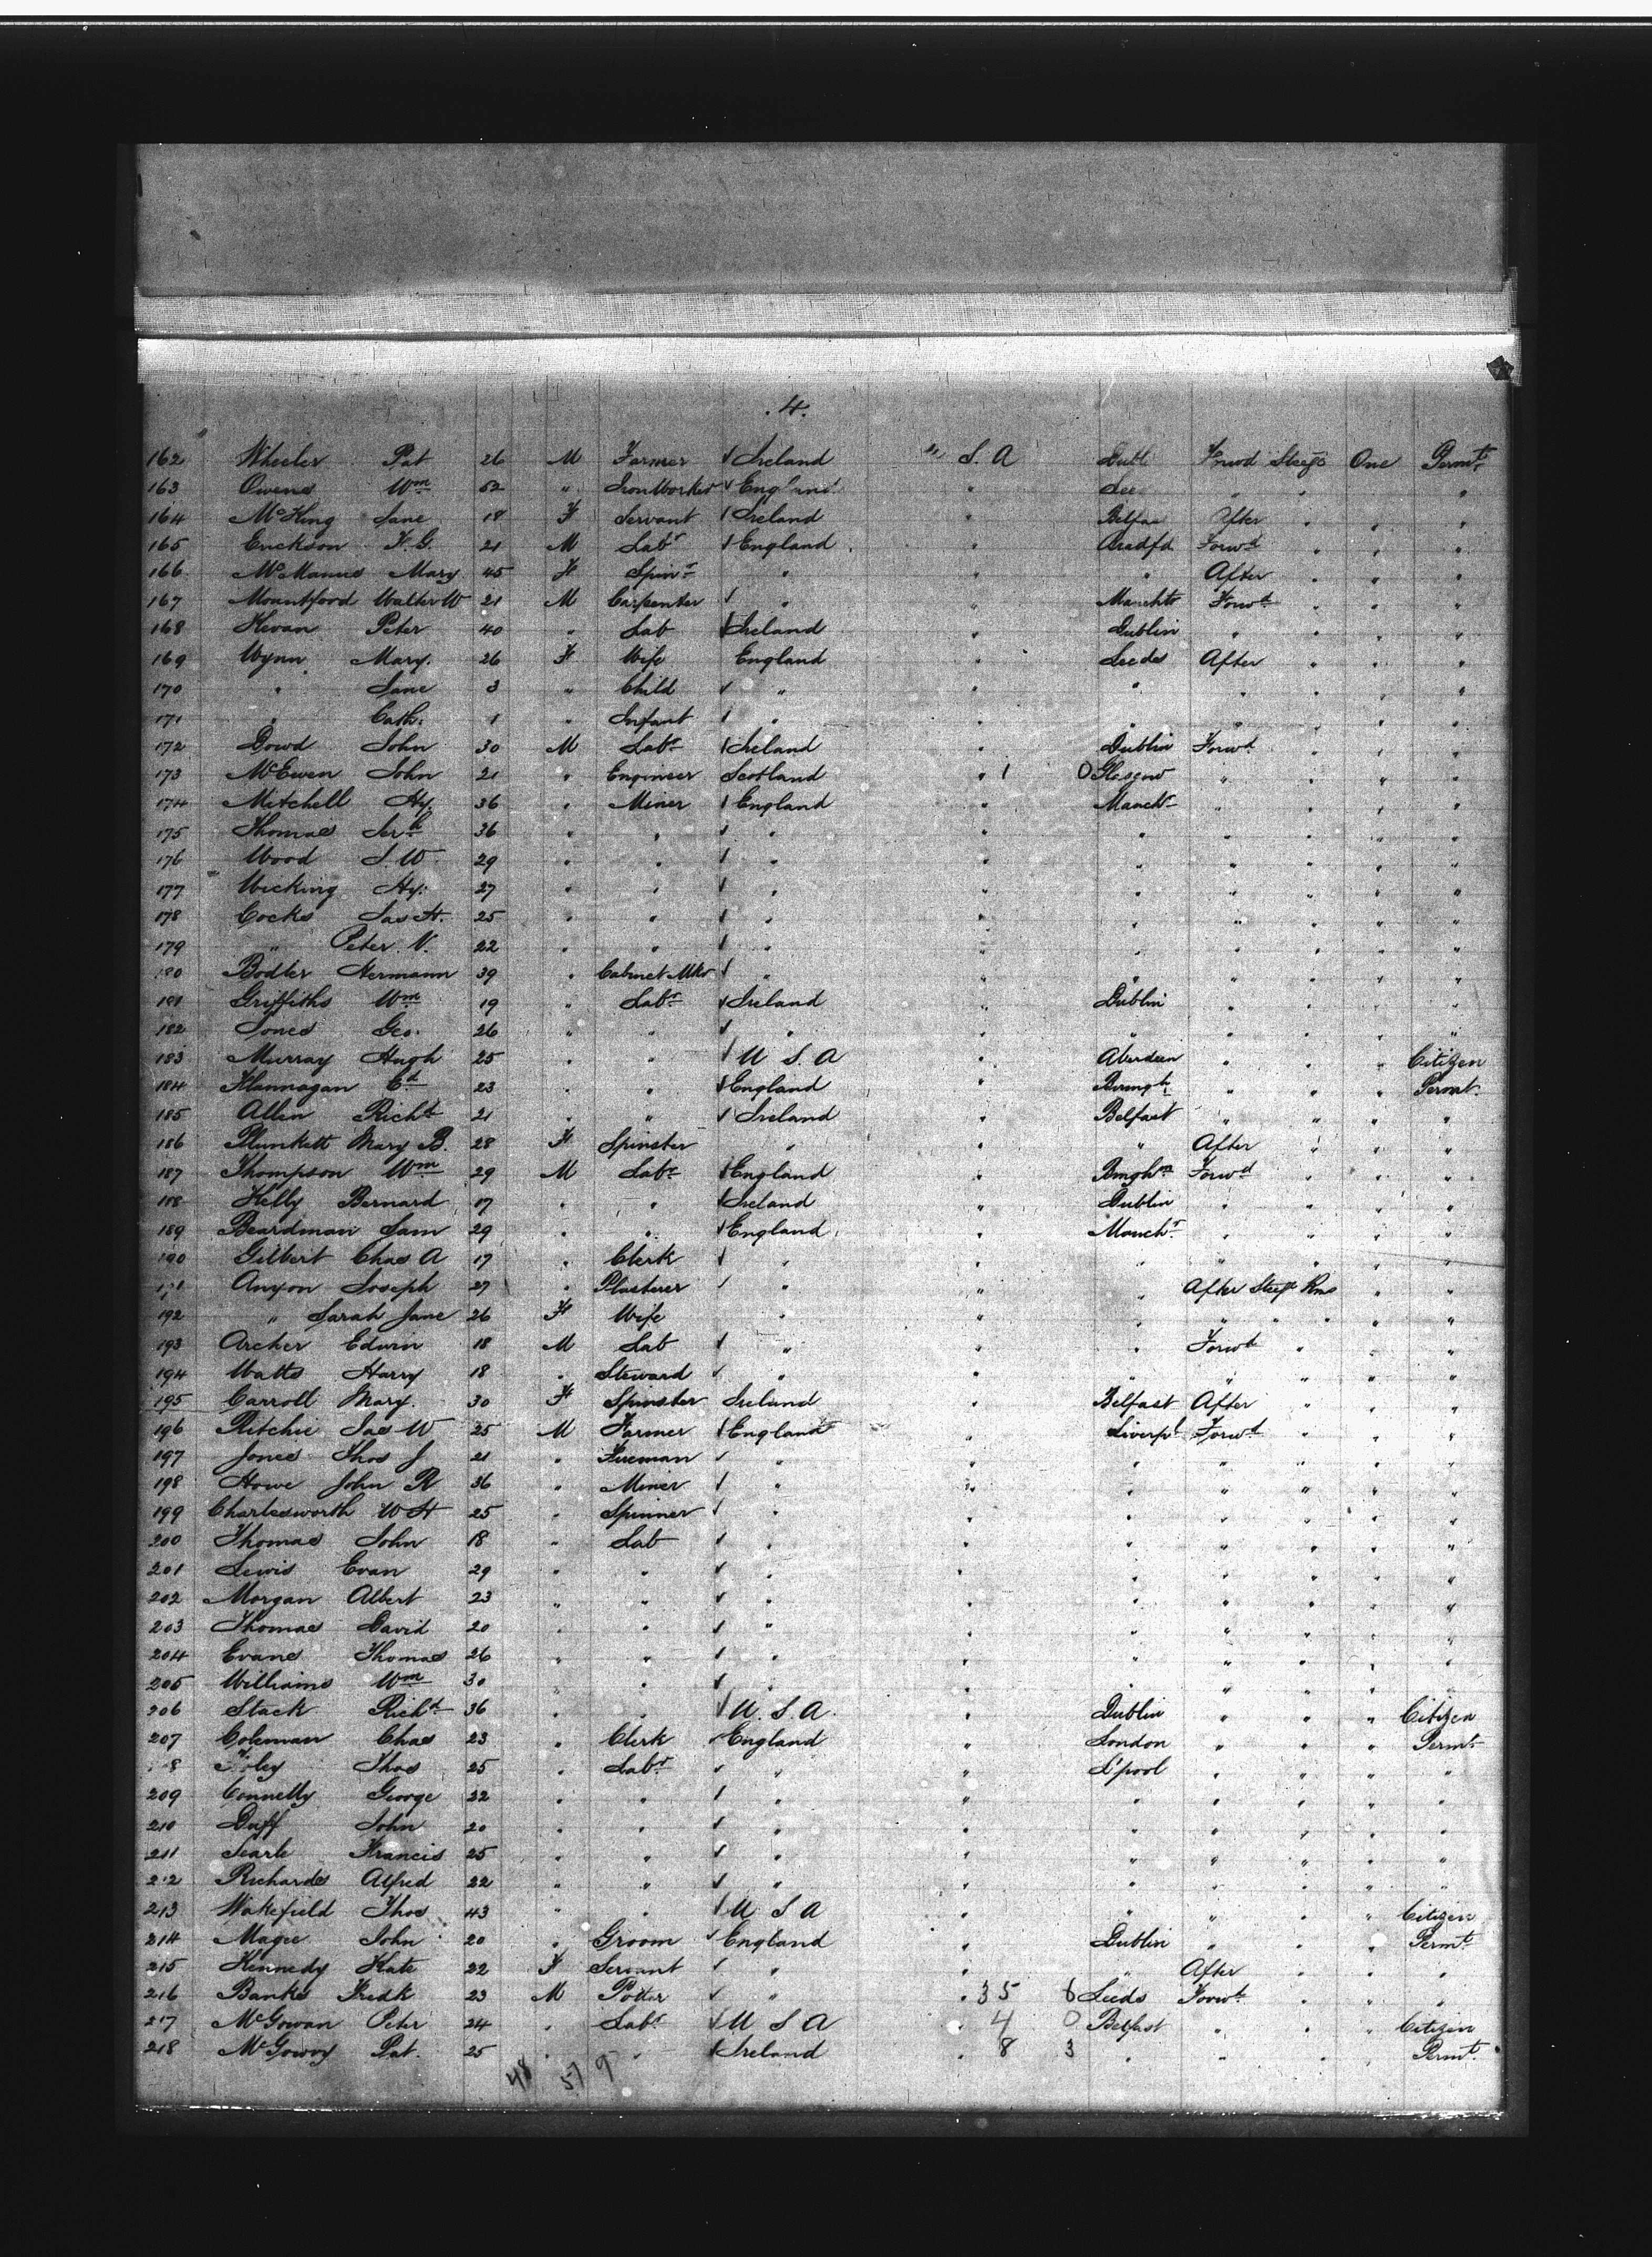 . 4 .
162 Wheeler Pat 26 M Farmer Ireland U. S. A Dubli Forwd Steege One Permt
163 Owens Wm 52 " Iron Worker England " Lee " " " "
164 Jane 18 F Servant Ireland " Belfas After " " "
165 Erickson F. G. 21 M Labr England " Bradfd Forwd " " "
166 McManus Mary 45 F Spinr " " " After " " "
167 Mountford Walter W 21 M Carpenter " " Manchtr Forwd " " "
168 Kevan Peter 40 " Lab Ireland " Dublin " " " "
169 Wynn Mary. 26 F Wife England " Leeds After " " "
170 " Jane 3 " Child " " " " " " "
171 " Cath: 1 " Infant " " " " " " "
172 Dowd John 30 M Labr Ireland " Dublin Forwd " " "
173 McEwen John 21 " Engineer Scotland " 1 0 Glasgow " " " "
174 Mitchell Hy. 36 " Miner England " Manchr " " " "
175 Thomas Jerh 36 " " " " " " " " "
176 Wood J. W. 29 " " " " " " " " "
177 Wicking Hy: 27 " " " " " " " " "
178 Cocks Jas H. 25 " " " " " " " " "
179 " Peter V. 22 " " " " " " " " "
180 Bodler Hermann 39 " Cabinet Mkr " " " " " " "
181 Griffiths Wm 19 " Labr Ireland " Dublin " " " "
182 Jones Geo. 26 " " " " " " " " "
183 Murray Hugh 25 " " U S. A " Aberdeen " " " Citizen
184 Flannagan Ed 23 " " England " Birmgh " " " Permt.
185 Allen Richd 21 " " Ireland " Belfast " " " "
186 Plunkett Mary B. 28 F Spinster " " " After " " "
187 Thompson Wm 29 M Labr England " Bmghm Forwd " " "
188 Kelly Bernard 17 " " Ireland " Dublin " " " "
189 Beardman Sam 29 " " England " Manchr " " " "
190 Gilbert Chas A 17 " Clerk " " " " " " "
191 Anyon Joseph 27 " Plasterer " " " After Steege Rms " "
192 " Sarah Jane 26 F Wife " " " " " " " "
193 Archer Edwin 18 M Lab " " " Forwd " " "
194 Watts Harry 18 " Steward " " " " " " "
195 Carroll Mary. 30 F Spinster Ireland " Belfast After " " "
196 Ritchie Jas W 25 M Farmer England " Liverpl Forwd " " "
197 Jones Thos J 21 " Fireman " " " " " " "
198 Howe John R 36 " Miner " " " " " " "
199 Charlesworth W H 25 " Spinner " " " " " " "
200 Thomas John 18 " Lab " " " " " " "
201 Lewis Evan 29 " " " " " " " " "
202 Morgan Albert 23 " " " " " " " " "
203 Thomas David 20 " " " " " " " " "
204 Evans Thomas 26 " " " " " " " " "
205 Williams Wm 30 " " " " " " " " "
206 Stack Richd 36 " " U. S. A. " Dublin " " " Citizen
207 Coleman Chas 23 " Clerk England " London " " " Permt
8 Thos 25 " Labr " " L'pool " " " "
209 Connelly George 22 " " " " " " " " "
210 Duff John 20 " " " " " " " " "
211 Searle Francis 25 " " " " " " " " "
212 Richards Alfred 22 " " " " " " " " "
213 Wakefield Thos 43 " " U S A " " " " " Citizen
214 Magee John 20 " Groom England " Dublin " " " Permt
215 Kennedy Kate 22 F Servant " " " After " " "
216 Banks Fredk 23 M Potter " " 35 6 Leeds Forwd " " "
217 McGowan Peter 24 " Labr U S A " 4 0 Belfast " " " Citizen
218 Pat. 25 " " Ireland " 8 3 " " " " Permt.
48 51 9